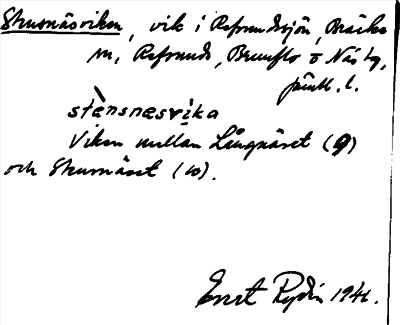 Stusnäsviken, vik i Refsundssjön, Bräcke
m, Refsunds, Brunflo o Näs tg,
jämtl. l.
stensnesvika
Viken mellan Långnäset (9)
och Stusnäset (10).
Ernst Rydin 1941.